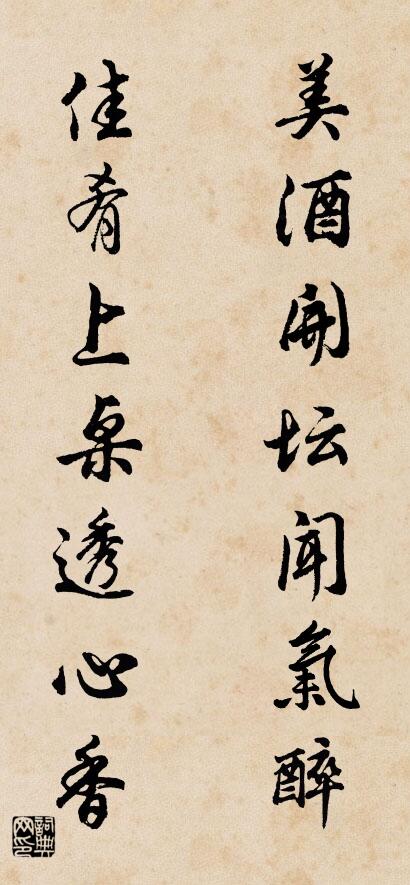 美酒開坛聞氣醉
佳肴上桌透心香
詞典网印